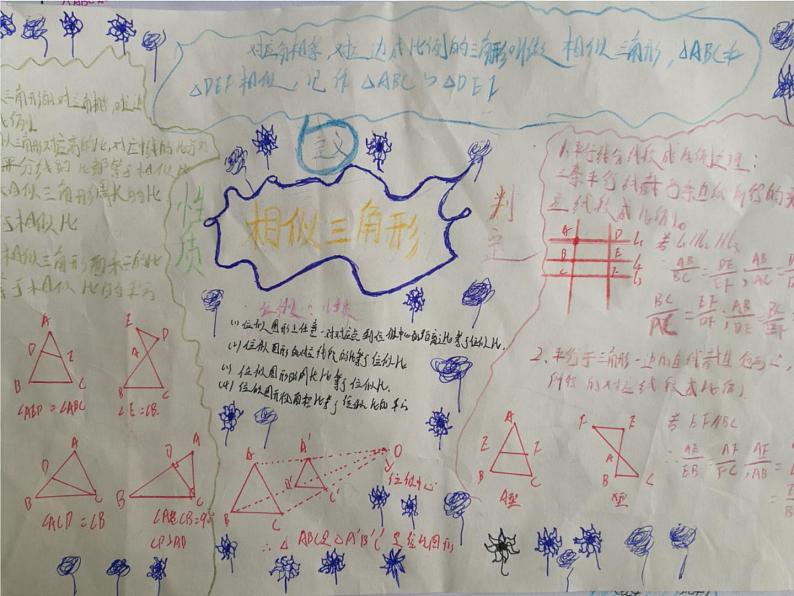 对应角相等,对应边成比例的三角形叫做相似三角形,△ABC和
△DEF相似,记作△ABC∽△DEF
定义
相似三角形
性质
三角形的对应角相等,对应边
比例。
三角形对应高的比,对应中线的比
平分线的比都等于相似比
相似三角形周长的比
相似比
相似三角形面积的比
等于相似比的平方
A
D
B
C
∠AED=∠ABC
E
D
A
B
C
∠E=∠B
A
D
B
C
∠ACD=∠B
A
D
B
C
位似
(1)位似图形上任意一对对应点到位似中心的距离之比等于位似比.
(2)位似图形的对应线段的比等于位似比
(3)位似图形的周长比等于位似比.
(4)位似图形的面积比等于位似比的平方
A
A'
O
B
B'
C
C'
位似中心
∴△ABC与△A'B'C'是位似图形
判定
1.平行线分线段成比例定理:
三条平行线截两条直线所得的
应线段成比例。
A D L₁
B E L₂
C F L₃
若L₁∥L₂∥L₃
AB/BC=DE/EF,AB/AC=
BC/AC=EF/DF,AB/DE=BC/EF
2.平行于三角形一边的直线截其他两边,
所得的对应线段成比例
A
E F
B C
A型
F E
A
B C
若EF∥BC
∴AE/EB=AF/FC,AE/AB=AF/